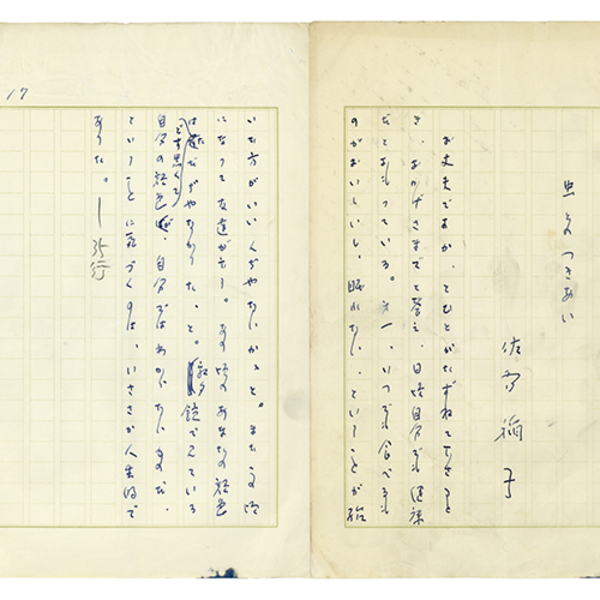 虫とのつきあい
佐多稲子
お丈夫ですか、とひとがたずねて下さると
き、おかげさまでと答え、日頃自分でも健康
だとおもっている。第一、いつでも食べるも
のがおいしいし、眠れない、ということが殆
いた方がいいんぢゃないか、と。またこの頃
になって友達が云う。あの時のあなたの顔色
はどす黒くてただぢゃなかった、と。朝夕鏡で見ている
自分の顔色が、自分ではわからないものだ、
ということに気づくのは、いささか人生的で
あった。
35行
17